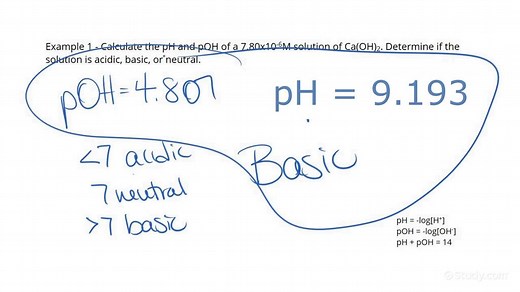 Example 1 - Calculate the pH and pOH of a 7.80x10⁻⁶M solution of Ca(OH)₂. Determine if the
solution is acidic, basic, or neutral.
pOH = 4.807
pH = 9.193
<7 acidic
Basic
7 neutral
>7 basic
pH = -log[H⁺]
pOH = -log[OH⁻]
pH + pOH = 14
Study.com